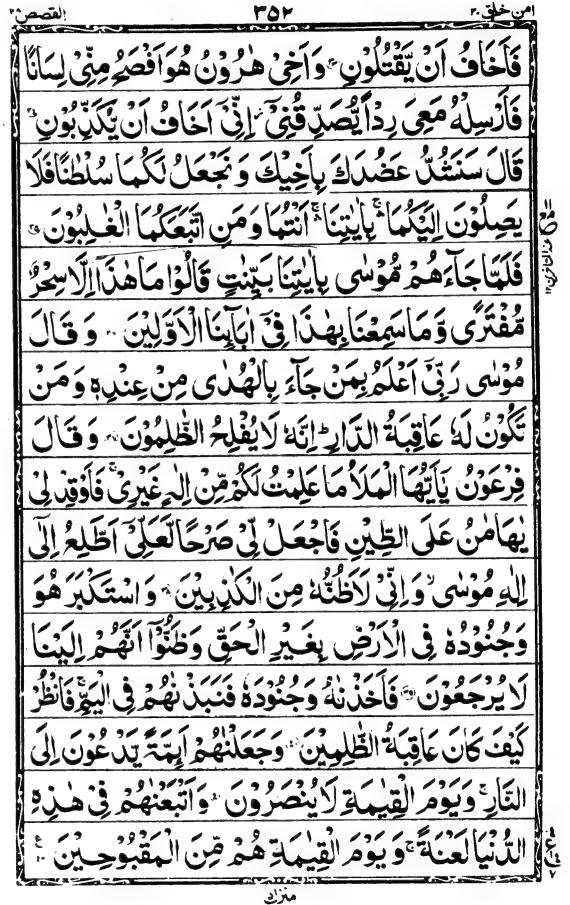 امن خلق ۲۰ ۳۵۲ القصص ۲۸
فَاَخَافُ اَنْ يَّقْتُلُوْنِ ۳۳ وَاَخِيْ هٰرُوْنُ هُوَ اَفْصَحُ مِنِّيْ لِسَانًا
فَاَرْسِلْهُ مَعِيَ رِدْاً يُّصَدِّقُنِيْٓ ز اِنِّيْٓ اَخَافُ اَنْ يُّكَذِّبُوْنِ ۳۴
قَالَ سَنَشُدُّ عَضُدَكَ بِاَخِيْكَ وَنَجْعَلُ لَكُمَا سُلْطٰنًا فَلَا
يَصِلُوْنَ اِلَيْكُمَا ۚۛ بِاٰيٰتِنَا ۚۛ اَنْتُمَا وَمَنِ اتَّبَعَكُمَا الْغٰلِبُوْنَ ۳۵
فَلَمَّا جَآءَهُمْ مُّوْسٰى بِاٰيٰتِنَا بَيِّنٰتٍ قَالُوْا مَا هٰذَآ اِلَّا سِحْرٌ
مُّفْتَرًى وَّمَا سَمِعْنَا بِهٰذَا فِيْٓ اٰبَآئِنَا الْاَوَّلِيْنَ ۳۶ وَقَالَ
مُوْسٰى رَبِّيْٓ اَعْلَمُ بِمَنْ جَآءَ بِالْهُدٰى مِنْ عِنْدِهٖ وَمَنْ
تَكُوْنُ لَهٗ عَاقِبَةُ الدَّارِ ؕ اِنَّهٗ لَا يُفْلِحُ الظّٰلِمُوْنَ ۳۷ وَقَالَ
فِرْعَوْنُ يٰٓاَيُّهَا الْمَلَاُ مَا عَلِمْتُ لَكُمْ مِّنْ اِلٰهٍ غَيْرِيْ ۚ فَاَوْقِدْ لِيْ
يٰهَامٰنُ عَلَى الطِّيْنِ فَاجْعَلْ لِّيْ صَرْحًا لَّعَلِّيْٓ اَطَّلِعُ اِلٰٓى
اِلٰهِ مُوْسٰى ۙ وَاِنِّيْ لَاَظُنُّهٗ مِنَ الْكٰذِبِيْنَ ۳۸ وَاسْتَكْبَرَ هُوَ
وَجُنُوْدُهٗ فِي الْاَرْضِ بِغَيْرِ الْحَقِّ وَظَنُّوْٓا اَنَّهُمْ اِلَيْنَا
لَا يُرْجَعُوْنَ ۳۹ فَاَخَذْنٰهُ وَجُنُوْدَهٗ فَنَبَذْنٰهُمْ فِي الْيَمِّ ۚ فَانْظُرْ
كَيْفَ كَانَ عَاقِبَةُ الظّٰلِمِيْنَ ۴۰ وَجَعَلْنٰهُمْ اَئِمَّةً يَّدْعُوْنَ اِلَى
النَّارِ ۚ وَيَوْمَ الْقِيٰمَةِ لَا يُنْصَرُوْنَ ۴۱ وَاَتْبَعْنٰهُمْ فِيْ هٰذِهِ
الدُّنْيَا لَعْنَةً ۚ وَيَوْمَ الْقِيٰمَةِ هُمْ مِّنَ الْمَقْبُوْحِيْنَ
منزل